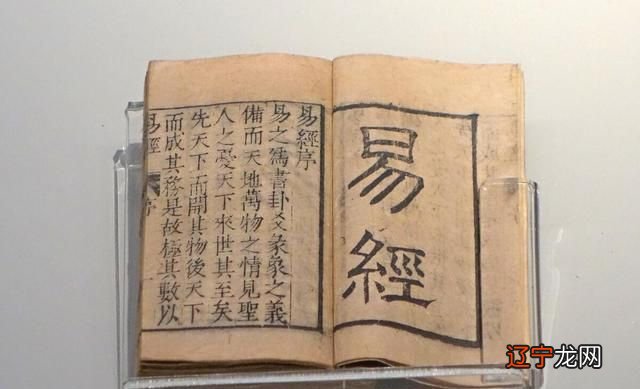 易經
易經序
易之爲書卦爻彖象之義
備而天地萬物之情見聖
人之憂天下來世其至矣
先天下而開其物後天下
而成其務是故極其數以
易經 序
辽宁龙网